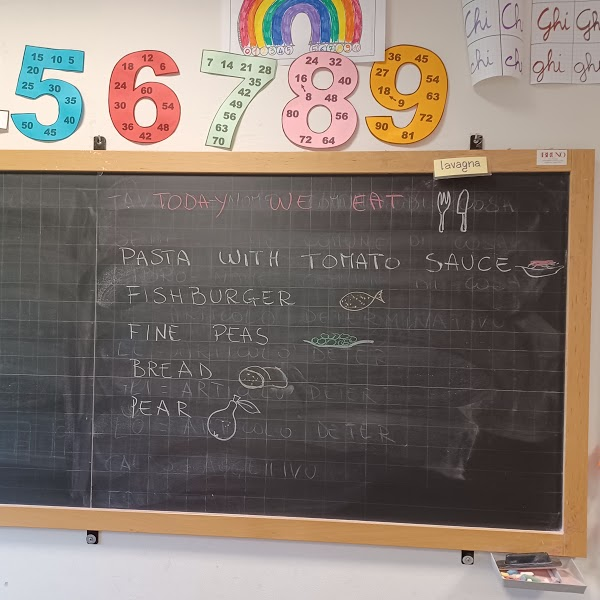 Chi Ch Ghi Gh
chi ch ghi ghi
5 15 10 5 20 25 30 35 40 45 50
6 12 6 18 24 60 54 30 36 48 42
7 7 14 21 28 35 42 49 56 63 70
8 24 32 16 40 8 48 80 56 72 64
9 36 45 27 54 18 9 63 72 90 81
lavagna
TODAY WE EAT
PASTA WITH TOMATO SAUCE
FISHBURGER
FINE PEAS
BREAD
PEAR